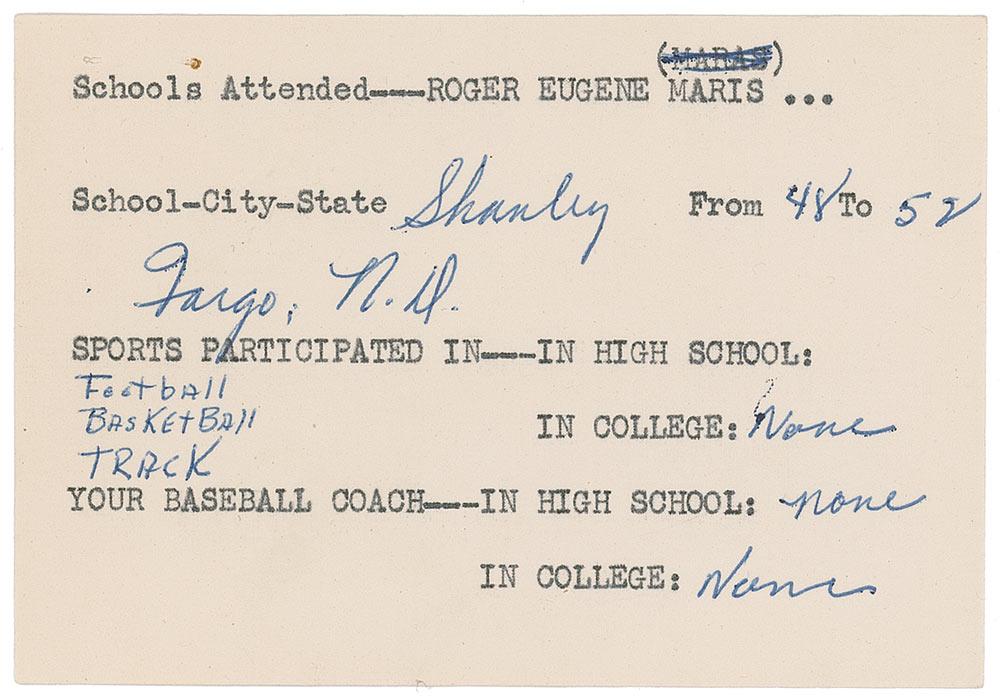 (MARAS)
Schools Attended---ROGER EUGENE MARIS ...
School-City-State Shanley From 48 To 52
Fargo, N.D.
SPORTS PARTICIPATED IN---IN HIGH SCHOOL:
Football
BASKETBAll
IN COLLEGE: None
TRACK
YOUR BASEBALL COACH---IN HIGH SCHOOL: none
IN COLLEGE: None